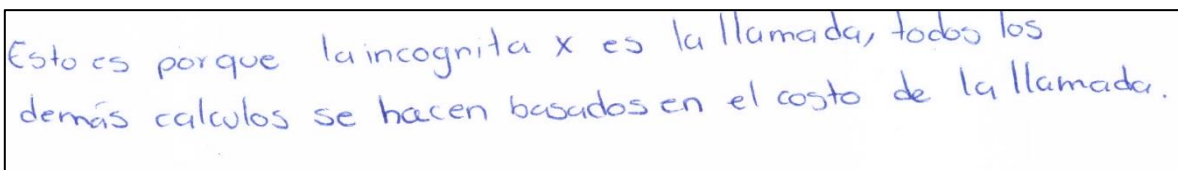 Esto es porque la incognita x es la llamada, todos los
demás calculos se hacen basados en el costo de la llamada.